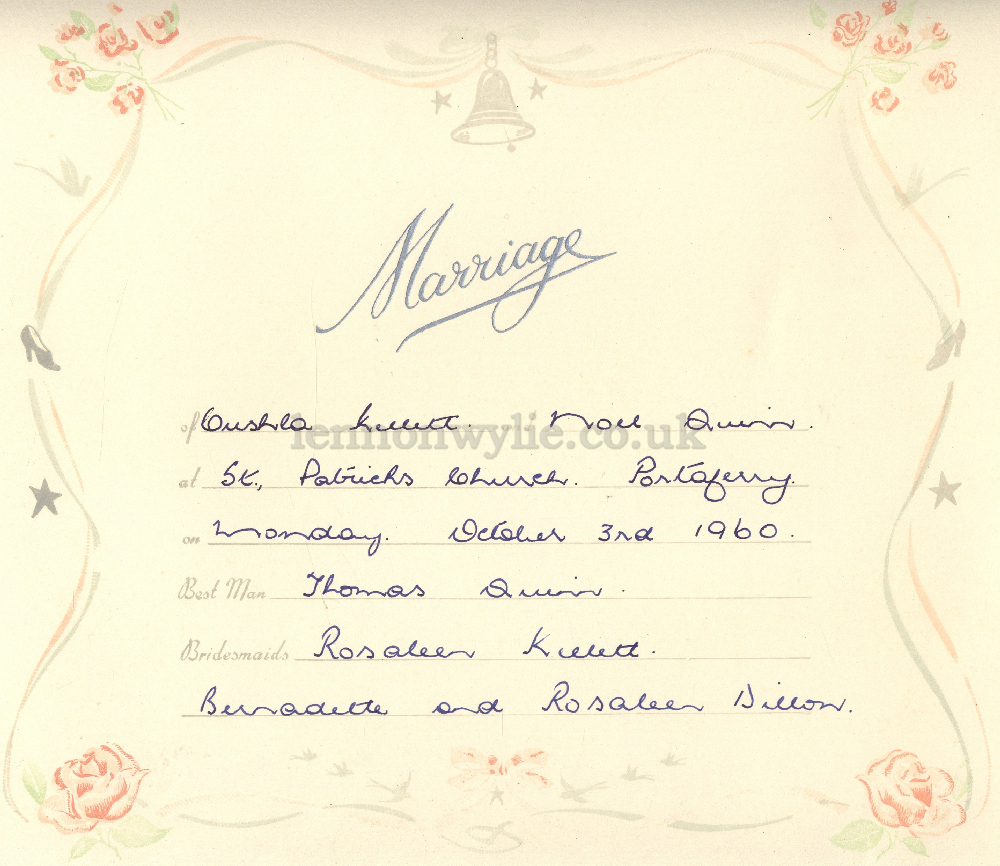 Marriage
of Noel Quinn.
lennonwylie.co.uk
at St., Patricks Church. Portaferry.
on Monday. October 3rd 1960.
Best Man Thomas Quinn.
Bridesmaids Rosaleen
Bernadette and Rosaleen Dillon.